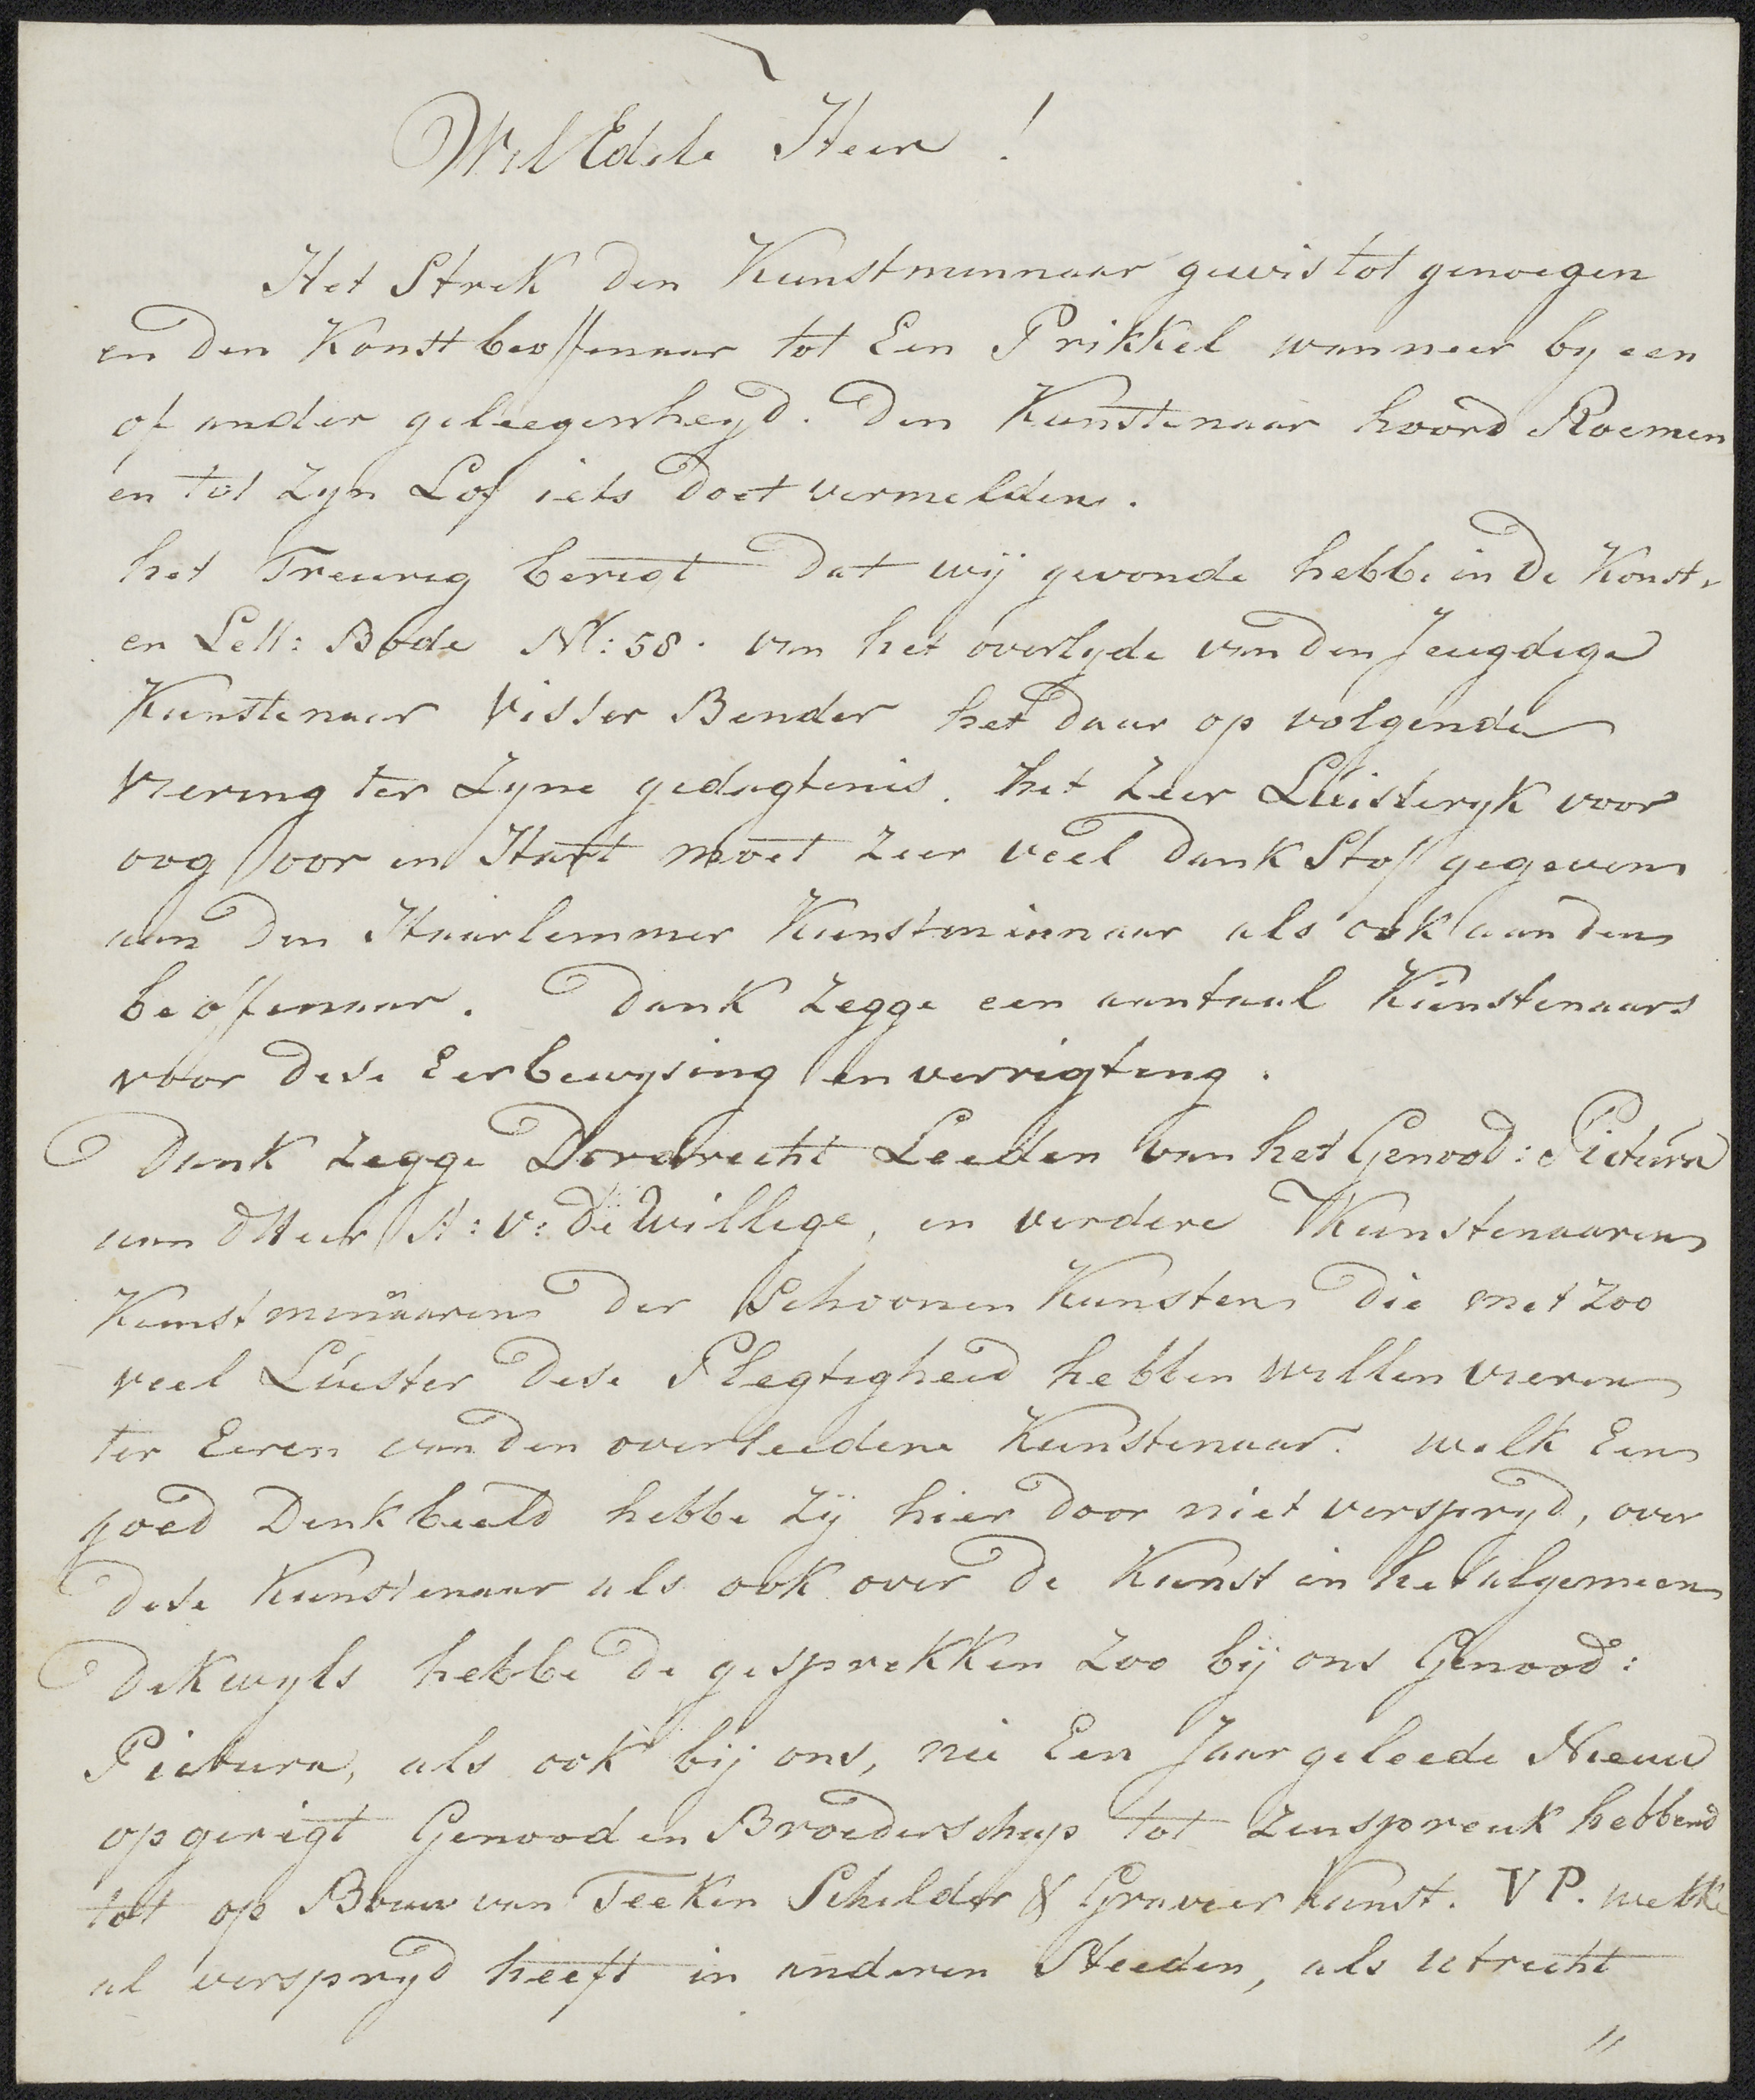 WelEdele Heer!
Het Strek den Kunstminnaar gewis tot genoegen
en den Konstbeoffenaar tot Een Prikkel wanneer by een
of ander geleegenheyd. den Kunstenaar hoord Roemen
en tot zyn Lof iets doet vermelden.
het Treurig berigt dat wij gevonde hebbe in de Konst
en Lett: Bode No: 58. van het overlyde van den Jeugdige
Kunstenaar Visser Bender het daar op volgende
viering ter Zyne gedagtenis. het zeer Luisteryk voor
oog oor en Hart moet zeer veel dank Stof gegeven
aan den Haarlemmer Kunstminnaar als ook aan den
beoffenaar. Dank zegge een aantaal Kunstenaars
voor dese Eerbewysing en verrigting.
Dank zegge Dordrecht Leeden van het Genood: Pictura
aan dHeer A: v: de Willige, en verdere Kunstenaaren
Kunstminnaaren der Schoonen Kunsten die met zoo
veel Luister dese Plegtigheid hebben willen vieren
ter Eeren van den overleedene Kunstenaar. welk Een
goed Denkbeeld hebbe zij hier door niet verspryd, over
dese Kunstenaar als ook over de Kunst in het algemeen
dekwyls hebbe de gesprekken zoo bij ons Genood:
Pictura, als ook bij ons, nu Een Jaar geleede Nieuw
opgerigt Genood en Broederschap tot zinspreuk hebbend
tot op Bouw van Teeken Schilder & Graveer Kunst. VP. welke
al verspryd heeft in anderen Steeden, als Utrecht
"